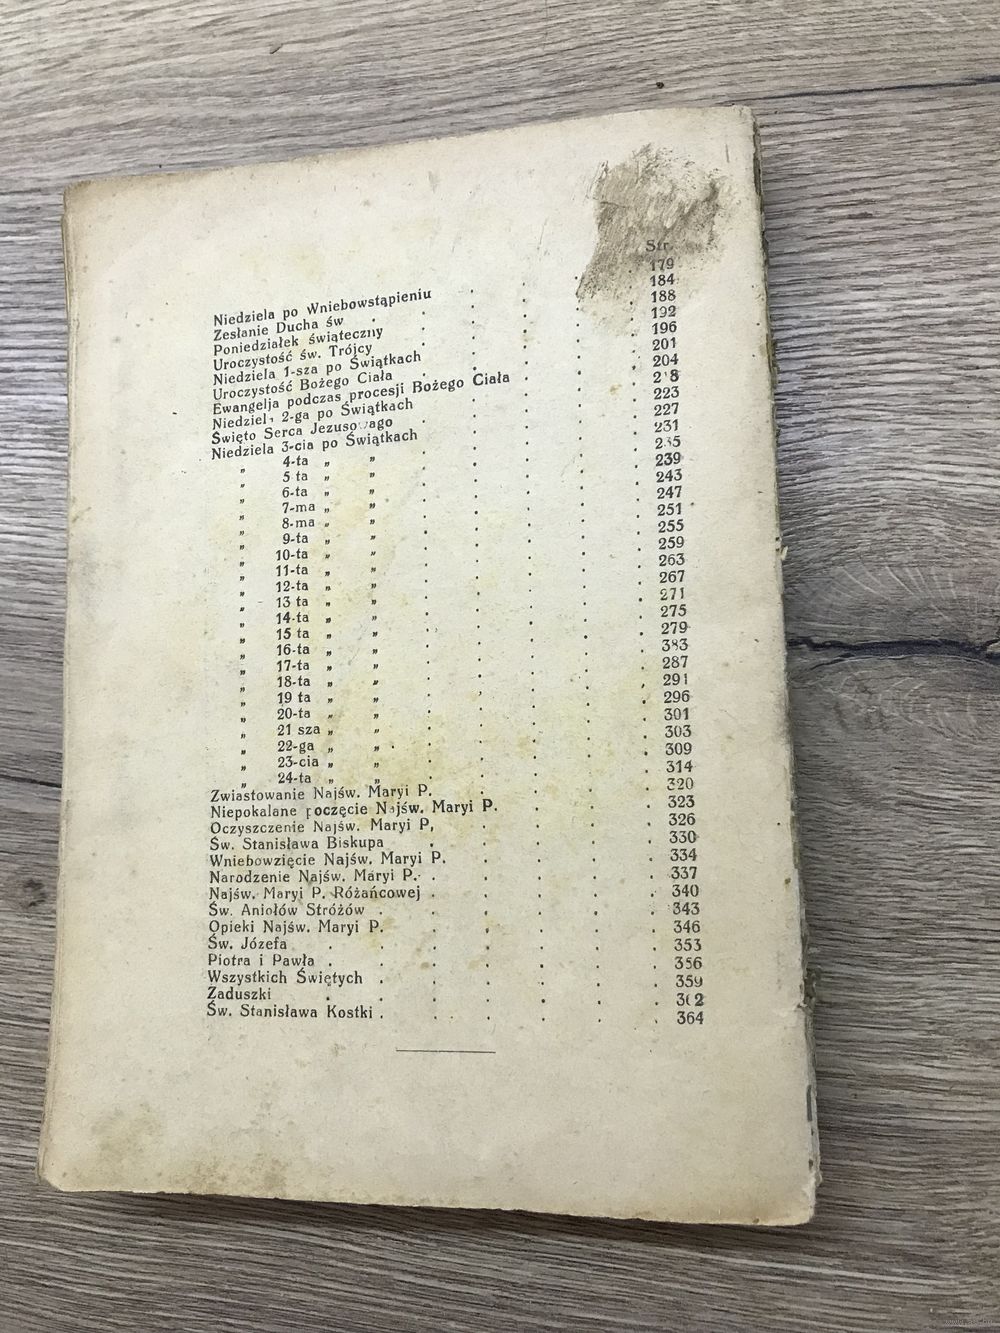 Str.
Niedziela po Wniebowstąpieniu . . . . 179
Zesłanie Ducha św . . . . . 184
Poniedziałek świąteczny . . . . . 188
Uroczystość św. Trójcy . . . . . 192
Niedziela 1-sza po Świątkach . . . . 196
Uroczystość Bożego Ciała . . . . . 201
Ewangelja podczas procesji Bożego Ciała . . . 204
Niedziel 2-ga po Świątkach . . . . 2 8
Święto Serca Jezusowago . . . . . 223
Niedziela 3-cia po Świątkach . . . . 227
„ 4-ta „ „ . . . . . 231
„ 5 ta „ „ . . . . . 235
„ 6-ta „ „ . . . . . 239
„ 7-ma „ „ . . . . . 243
„ 8-ma „ „ . . . . . 247
„ 9-ta „ „ . . . . . 251
„ 10-ta „ „ . . . . . 255
„ 11-ta „ „ . . . . . 259
„ 12-ta „ „ . . . . . 263
„ 13 ta „ „ . . . . . 267
„ 14-ta „ „ . . . . . 271
„ 15 ta „ „ . . . . . 275
„ 16-ta „ „ . . . . . 279
„ 17-ta „ „ . . . . . 383
„ 18-ta „ „ . . . . . 287
„ 19 ta „ „ . . . . . 291
„ 20-ta „ „ . . . . . 296
„ 21 sza „ „ . . . . . 301
„ 22-ga „ „ . . . . . 303
„ 23-cia „ „ . . . . . 309
„ 24-ta „ „ . . . . . 314
Zwiastowanie Najśw. Maryi P. . . . . 320
Niepokalane poczęcie Najśw. Maryi P. . . . 323
Oczyszczenie Najśw. Maryi P, . . . . 326
Św. Stanisława Biskupa . . . . . 330
Wniebowzięcie Najśw. Maryi P. . . . . 334
Narodzenie Najśw. Maryi P. . . . . . 337
Najśw. Maryi P. Różańcowej . . . . . 340
Św. Aniołów Stróżów . . . . . . 343
Opieki Najśw. Maryi P. . . . . . 346
Św. Józefa . . . . . . . 353
Piotra i Pawła . . . . . . . 356
Wszystkich Świętych . . . . . . 359
Zaduszki . . . . . . . 362
Św. Stanisława Kostki . . . . . . 364